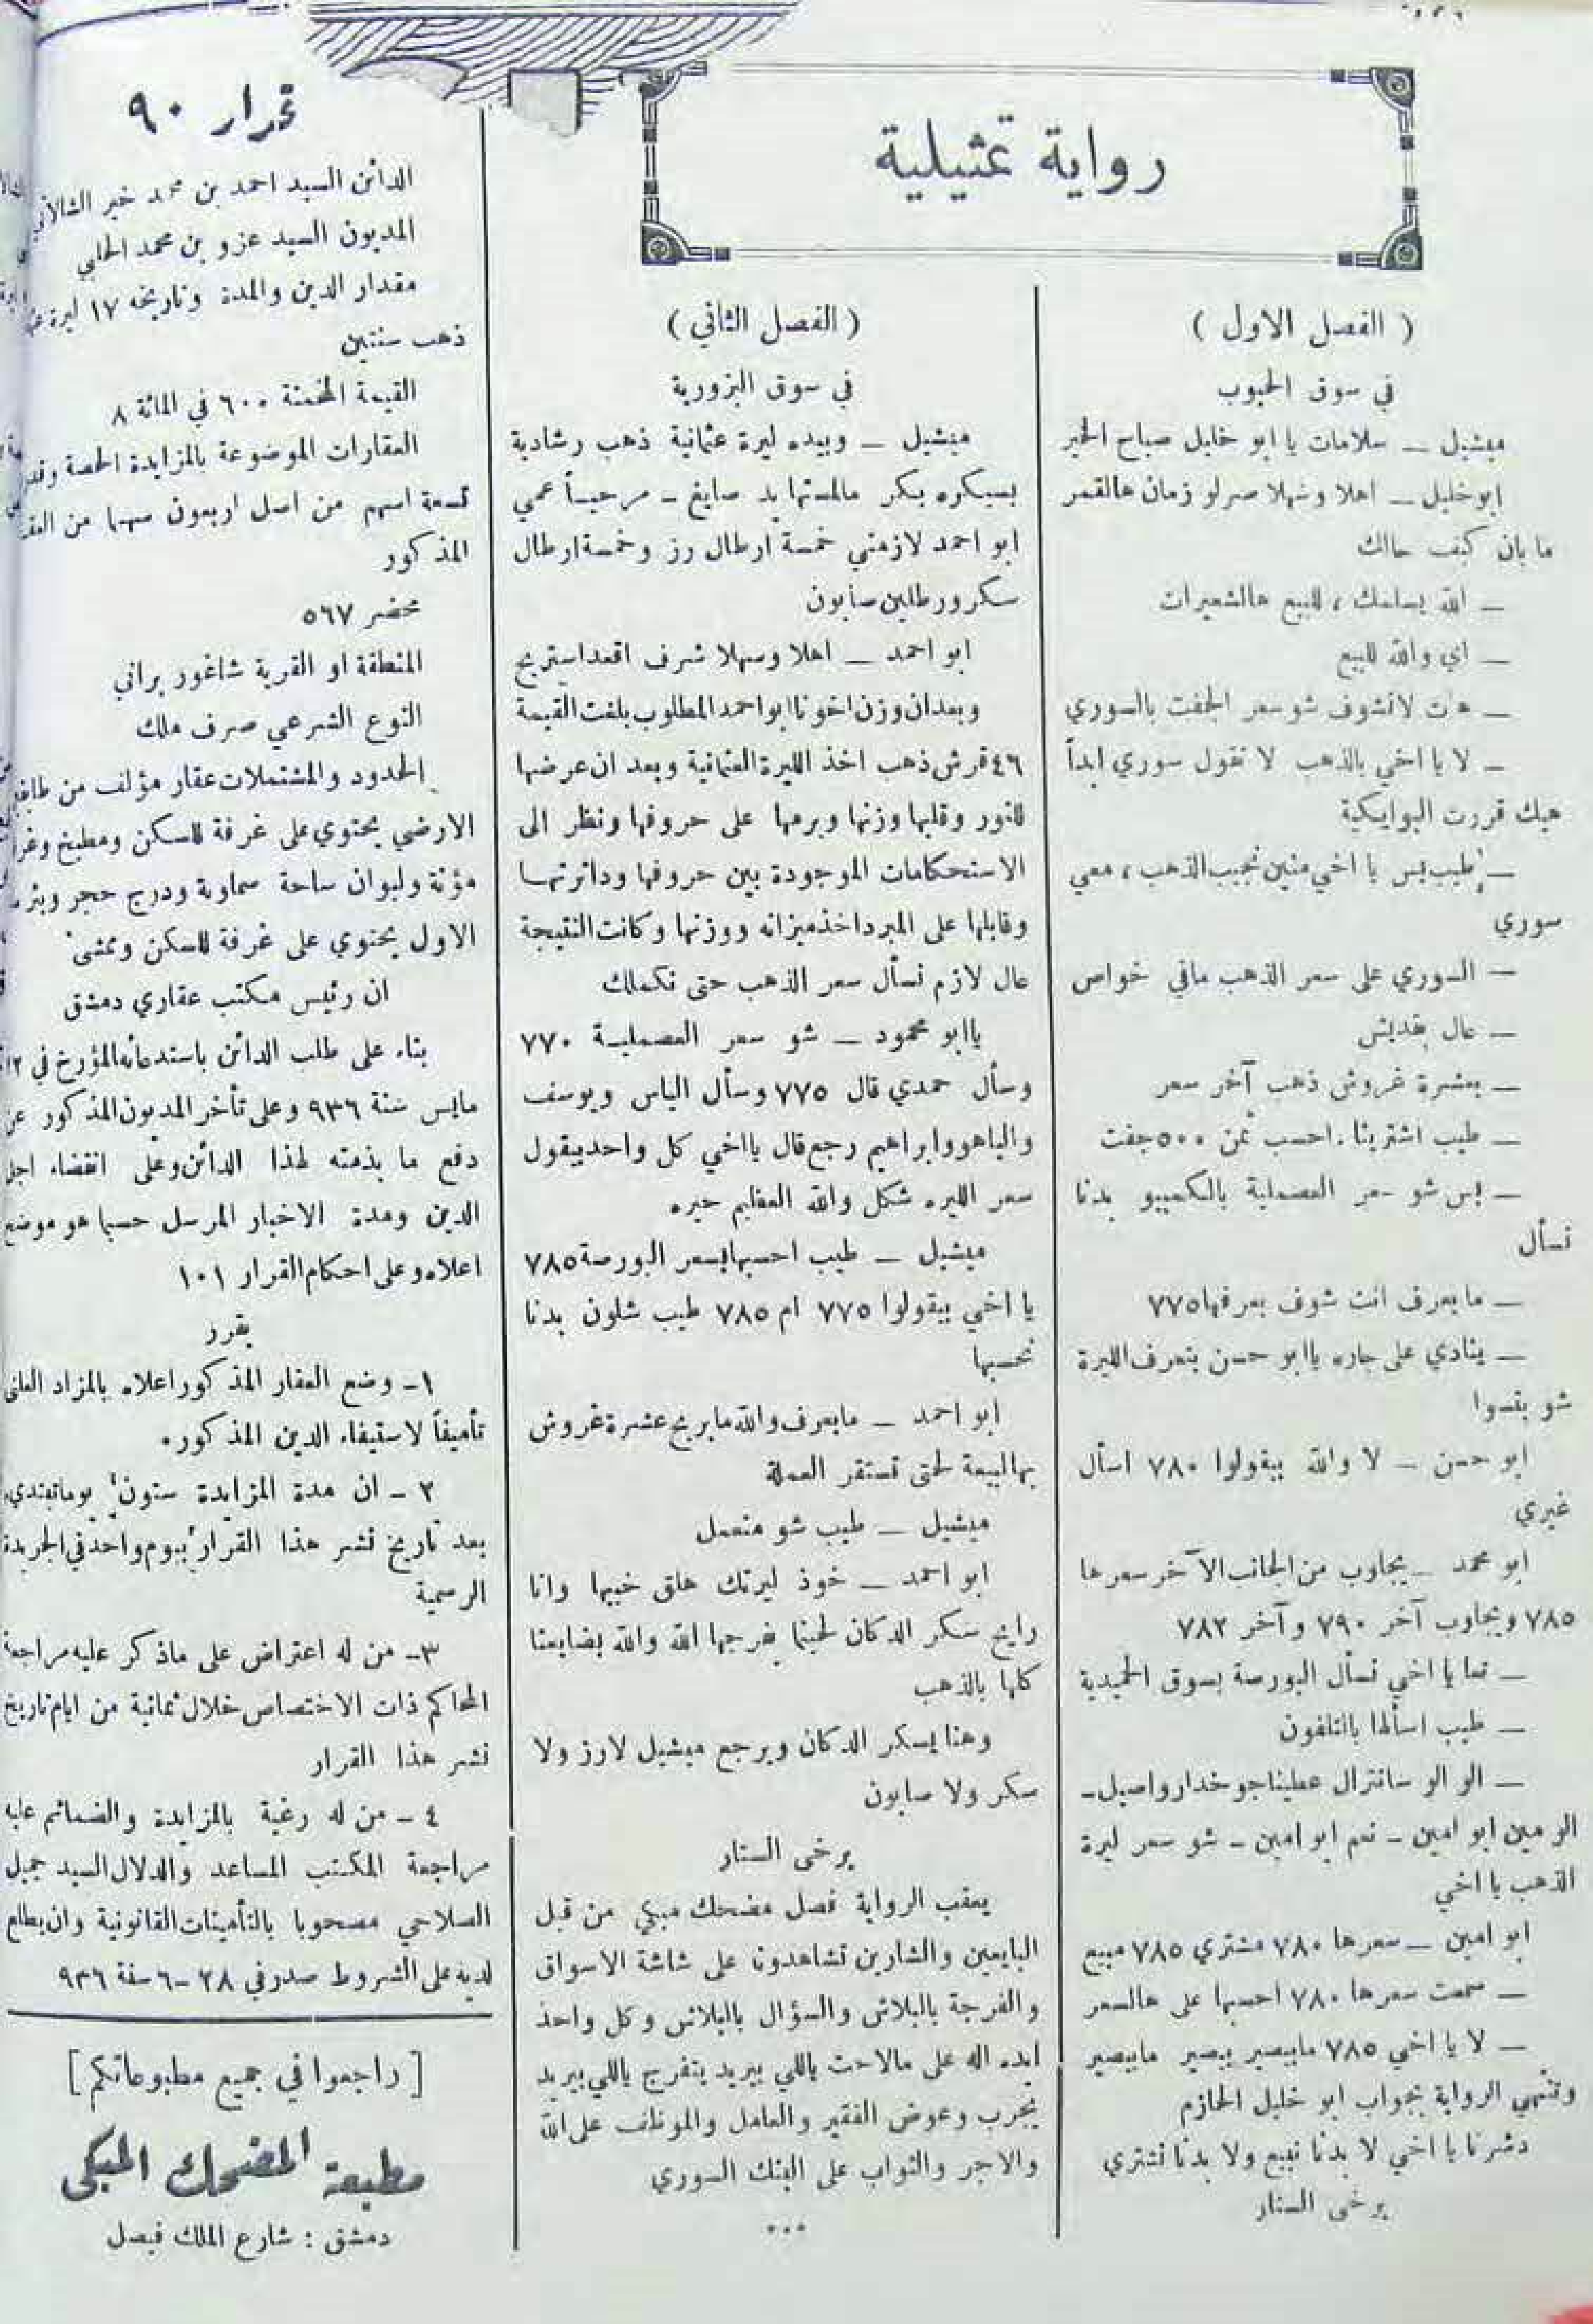 رواية تمثيلية
( الفصل الاول )
في سوق الحبوب
ميشيل ــ سلامات يا ابو خليل صباح الخير
ابو خليل ــ اهلا وسهلا صرلو زمان هالقمر
ما بان كيف حالك
ــ الله يسلمك ، للبيع هالشعيرات
ــ اي والله للبيع
ــ هات لانشوف شو سعر الجفت بالسوري
ــ لا يا اخي بالذهب لا تقول سوري ابداً
هيك قررت البوايكية
ــ طيب بس يا اخي منين نجيب الذهب ، معي
سوري
ــ السوري على سعر الذهب مافي خواص
ــ عال بقديش
ــ بعشرة غروش ذهب آخر سعر
ــ طيب اشترينا . احسب ثمن ٥٠٠ جفت
ــ بس شو سعر العصملية بالكمبيو بدنا
نسأل
ــ ما بعرف انت شوف بعرفها ٧٧٥
ــ ينادي على جاره يا ابو حسن بتعرف الليرة
شو بتسوا
ابو حسن ــ لا والله بيقولوا ٧٨٠ اسأل
غيري
ابو محمد ــ يجاوب من الجانب الآخر سعرها
٧٨٥ ويجاوب آخر ٧٩٠ وآخر ٧٨٢
ــ تعا يا اخي نسأل البورصة بسوق الحميدية
ــ طيب اسألها بالتلفون
ــ الو الو سانترال عطينا جو خدار واصيل ــ
الو مين ابو امين ــ نعم ابو امين ــ شو سعر ليرة
الذهب يا اخي
ابو امين ــ سعرها ٧٨٠ مشتري ٧٨٥ مبيع
ــ سمعت سعرها ٧٨٠ احسبها على هالسعر
ــ لا يا اخي ٧٨٥ مابيصير بيصير مابيصير
وتنتهي الرواية بجواب ابو خليل الحازم
دشرنا يا اخي لا بدنا نبيع ولا بدنا نشتري
يرخى الستار
( الفصل الثاني )
في سوق البزورية
ميشيل ــ وبيده ليرة عثمانية ذهب رشادية
بسيكره بكر مالمستها يد صايغ ــ مرحباً عمي
ابو احمد لازمني خمسة ارطال رز وخمسة ارطال
سكر ورطلين صابون
ابو احمد ــ اهلا وسهلا شرف اقعد استريح
وبعد ان وزن اخونا ابو احمد المطلوب بلغت القيمة
٤٦ قرش ذهب اخذ الليرة العثمانية وبعد ان عرضها
للنور وقلبها وزنها وبرمها على حروفها ونظر الى
الاستحكامات الموجودة بين حروفها ودائرتها
وقابلها على المبرد اخذ ميزانه ووزنها وكانت النتيجة
عال لازم نسأل سعر الذهب حتى نكملك
يا ابو محمود ــ شو سعر العصملية ٧٧٠
وسأل حمدي قال ٧٧٥ وسأل الياس ويوسف
والياهو وابراهيم رجع قال يا اخي كل واحد بيقول
سعر الليره شكل والله العظيم حيره
ميشيل ــ طيب احسبها بسعر البورصة ٧٨٥
يا اخي بيقولوا ٧٧٥ ام ٧٨٥ طيب شلون بدنا
نحسبها
ابو احمد ــ مابعرف والله مابربح عشرة غروش
بهالبيعة لحتى تستقر العملة
ميشيل ــ طيب شو منعمل
ابو احمد ــ خوذ ليرتك هلق خبيها وانا
رايح سكر الدكان لحينما يفرجها الله والله بضايعنا
كلها بالذهب
وهنا يسكر الدكان ويرجع ميشيل لارز ولا
سكر ولا صابون
يرخى الستار
يعقب الرواية فصل مضحك مبكي من قبل
البايعين والشارين تشاهدونه على شاشة الاسواق
والفرجة بالبلاش والسؤال بالبلاش وكل واحد
ايده اله على مالاحت ياللي بيريد يتفرج ياللي بيريد
يجرب وعوض الفقير والعامل والموظف على الله
والاجر والثواب على البنك السوري
٠٠٠
قرار ٩٠
الدائن السيد احمد بن محمد خير الشالاتي
المديون السيد عزو بن محمد الحلبي
مقدار الدين والمدة وتاريخه ١٧ ليرة
ذهب سنتين
القيمة المخمنة ٦٠٠ في المائة ٨
العقارات الموضوعة بالمزايدة الحصة وقد
تسعة اسهم من اصل اربعون سهما من العقار
المذكور
محضر ٥٦٧
المنطقة او القرية شاغور براني
النوع الشرعي صرف ملك
الحدود والمشتملات عقار مؤلف من طابقين
الارضي يحتوي على غرفة للسكن ومطبخ
مؤنة وليوان ساحة سماوية ودرج حجر وبئر
الاول يحتوي على غرفة للسكن وممشى
ان رئيس مكتب عقاري دمشق
بناء على طلب الدائن باستدعائه المؤرخ في ١٢
مايس سنة ٩٣٦ وعلى تأخر المديون المذكور عن
دفع ما بذمته لهذا الدائن وعلى انقضاء اجل
الدين ومدة الاخبار المرسل حسبما هو موضح
اعلاه وعلى احكام القرار ١٠١
يقرر
١ــ وضع العقار المذكور اعلاه بالمزاد العلني
تأميناً لاستيفاء الدين المذكور .
٢ ــ ان مدة المزايدة ستون يوما تبتدي
بعد تاريخ نشر هذا القرار بيوم واحد في الجريدة
الرسمية
٣ــ من له اعتراض على ماذكر عليه مراجعة
المحاكم ذات الاختصاص خلال ثمانية من ايام تاريخ
نشر هذا القرار
٤ ــ من له رغبة بالمزايدة والضمائم عليه
مراجعة المكتب المساعد والدلال السيد جميل
الصلاحي مصحوبا بالتأمينات القانونية وان يطلع
لديه على الشروط صدر في ٢٨ ــ ٦ سنة ٩٣٦
[ راجعوا في جميع مطبوعاتكم ]
مطبعة المضحك المبكي
دمشق : شارع الملك فيصل